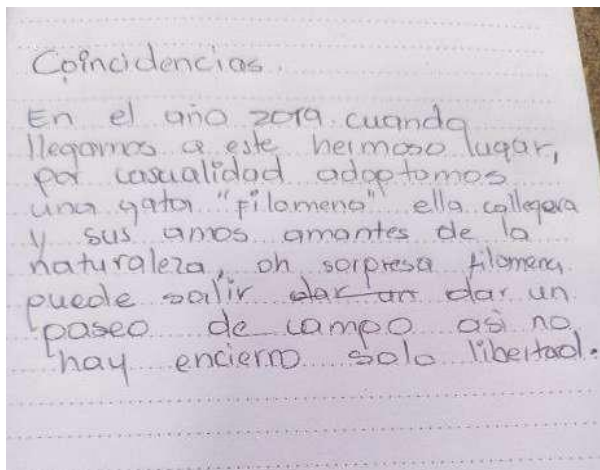 Coincidencias.
En el año 2019 cuando
llegamos a este hermoso lugar,
por casualidad adoptamos
una gata "filomena" ella callejera
y sus amos amantes de la
naturaleza, oh sorpresa filomena
puede salir dar un dar un
paseo de campo asi no
hay encierro solo libertad.